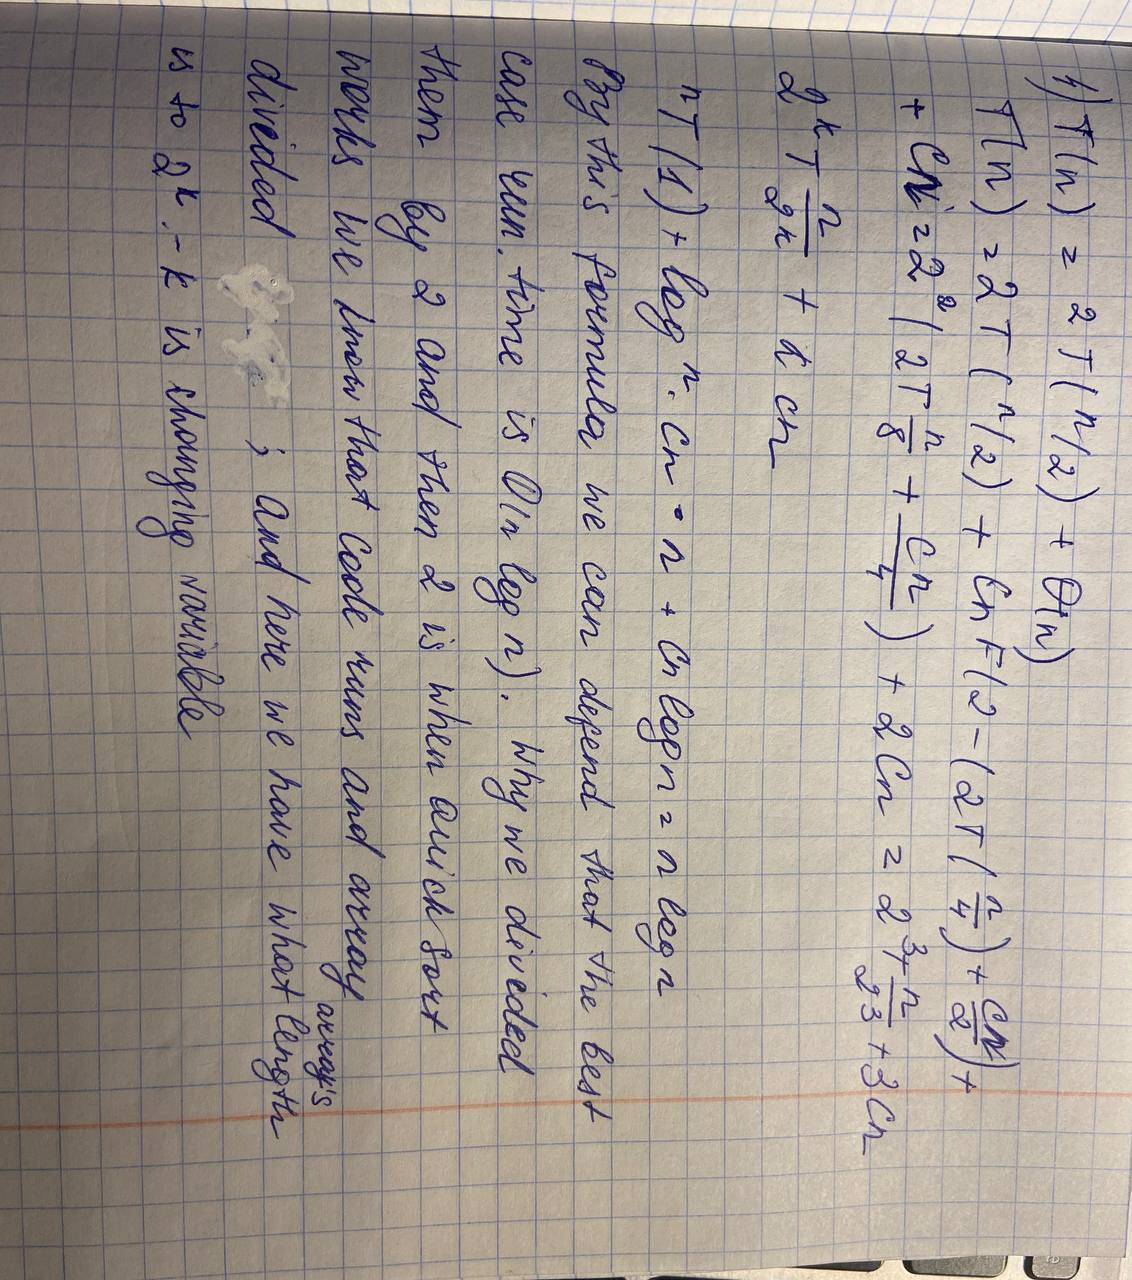 1) T(n) = 2T(n/2) + Θ(n)
T(n) = 2T(n/2) + Cn = (2 - (2T(n/4) + Cn/2) +
+ Cn = 2² (2T n/8 + Cn/4) + 2Cn = 2³T n/23 + 3Cn
2ᵏT n/2k + k cn
nT(1) + logⁿ · Cn = n + Cn log n = n log n
By this formula we can defend that the best
case run. time is O(n log n). Why we divided
them by 2 and then 2 is when quick sort
works we know that code runs and array
divided ; and here we have what array's length
is to 2ᵏ. - k is changing variable